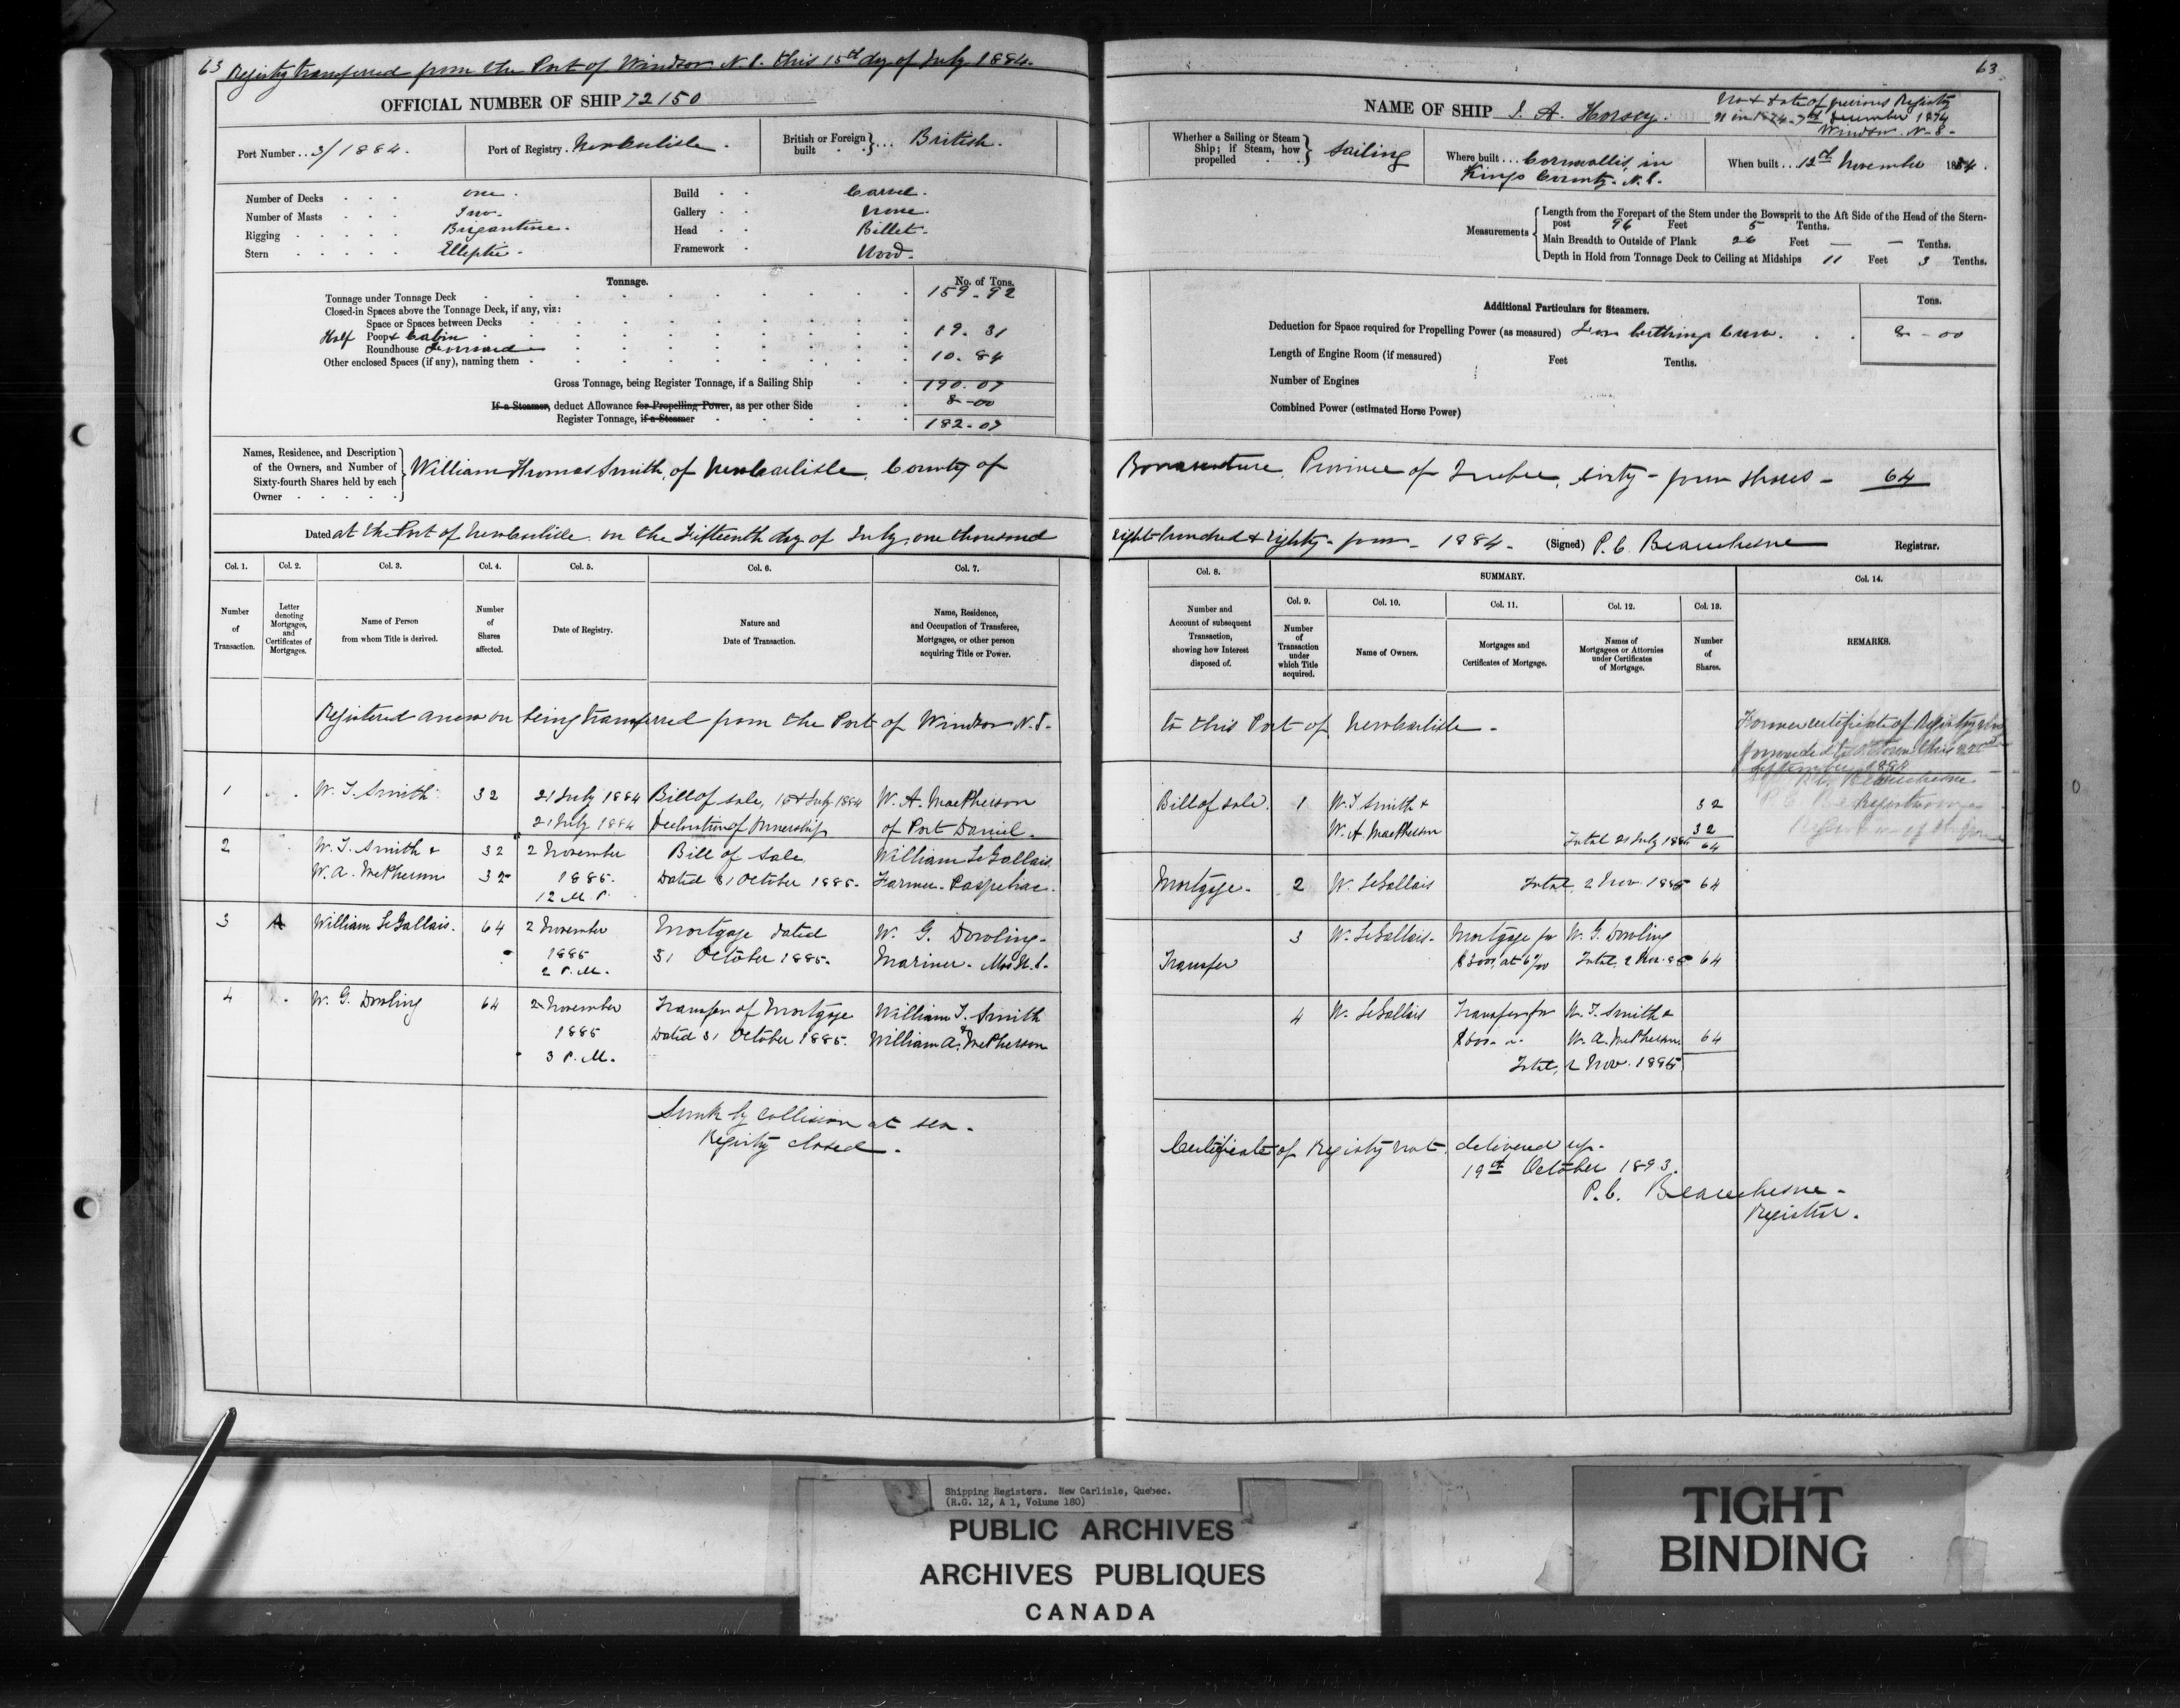 63 Registry transferred from the Port of Windsor N.S. this 15th day of July 1884.
OFFICIAL NUMBER OF SHIP 72150
Port Number .. 3/1884.
Port of Registry . New Carlisle .
British or Foreign built } ... British.
Number of Decks one .
Number of Masts Two.
Rigging Brigantine.
Stern Elliptic .
Build Carvel .
Gallery None.
Head Billet.
Framework Wood.
Tonnage. No. of Tons.
Tonnage under Tonnage Deck 159.92
Closed-in Spaces above the Tonnage Deck, if any, viz:
Space or Spaces between Decks
Half Poop & Cabin 19.31
Roundhouse Forward 10.84
Other enclosed Spaces (if any), naming them
Gross Tonnage, being Register Tonnage, if a Sailing Ship 190.07
If a Steamer, deduct Allowance for Propelling Power, as per other Side 8-00
Register Tonnage, if a Steamer 182.07
Names, Residence, and Description of the Owners, and Number of Sixty-fourth Shares held by each Owner
William Thomas Smith, of New Carlisle, County of
Dated at the Port of New Carlisle on the Fifteenth day of July, one thousand
Col. 1. Col. 2. Col. 3. Col. 4. Col. 5. Col. 6. Col. 7.
Number of Transaction.
Letter denoting Mortgages, and Certificates of Mortgages.
Name of Person from whom Title is derived.
Number of Shares affected.
Date of Registry.
Nature and Date of Transaction.
Name, Residence, and Occupation of Transferee, Mortgagee, or other person acquiring Title or Power.
Registered anew on being transferred from the Port of Windsor N.S.
1 W. T. Smith 32 21 July 1884 Bill of sale, 15th July 1884 W. A. MacPherson
21 July 1884 Declaration of Ownership of Port Daniel.
2 W. T. Smith & 32 2 November Bill of Sale William LeGallais
W. A. McPherson 32 1885. Dated 31 October 1885. Farmer. Paspebiac.
12 M P.
3 A William LeGallais. 64 2 November Mortgage dated W. G. Dowling.
1885 31 October 1885. Mariner.
2 P.M.
4 W. G. Dowling 64 2 November Transfer of Mortgage William T. Smith
1885 Dated 31 October 1885. & William A. McPherson
3 P.M.
Sunk by collision at sea.
Registry closed.
63
NAME OF SHIP J. A. Horsey.
No & date of previous Registry
21 in 1874. 7th December 1874
Windsor. N.S.
Whether a Sailing or Steam Ship; if Steam, how propelled } Sailing
Where built ... Cornwallis, in
Kings County. N.S.
When built .. 12th November 1874.
Measurements
Length from the Forepart of the Stem under the Bowsprit to the Aft Side of the Head of the Stern-
post 96 Feet 5 Tenths.
Main Breadth to Outside of Plank 26 Feet — — Tenths.
Depth in Hold from Tonnage Deck to Ceiling at Midships 11 Feet 3 Tenths.
Additional Particulars for Steamers. Tons.
Deduction for Space required for Propelling Power (as measured) For berthing Crew. 8-00
Length of Engine Room (if measured) Feet Tenths.
Number of Engines
Combined Power (estimated Horse Power)
Bonaventure, Province of Quebec, sixty-four shares - 64
eight hundred & eighty-four - 1884. (Signed) P. C. Beauchesne Registrar.
Col. 8. SUMMARY. Col. 14.
Col. 9. Col. 10. Col. 11. Col. 12. Col. 13.
Number and Account of subsequent Transaction, showing how Interest disposed of.
Number of Transaction under which Title acquired.
Name of Owners.
Mortgages and Certificates of Mortgage.
Names of Mortgagees or Attornies under Certificates of Mortgage.
Number of Shares.
REMARKS.
to this Port of New Carlisle.
Former certificate of Registry
forwarded to Ottawa this
September 1884
P. C. Beauchesne
Bill of sale. 1 W. T. Smith & 32
W. A. MacPherson 32
Total 21 July 1884 64
Mortgage. 2 W. LeGallais Total, 2 Nov. 1885 64
3 W. LeGallais. Mortgage for W. G. Dowling
Transfer Total, 2 Nov. 85 64
4 W. LeGallais Transfer for W. T. Smith &
W. A. McPherson. 64
Total, 2 Nov. 1885
Certificate of Registry not delivered up.
19th October 1893.
P. C. Beauchesne.
Registrar.
Shipping Registers. New Carlisle, Quebec.
(R.G. 12, A 1, Volume 180)
PUBLIC ARCHIVES
ARCHIVES PUBLIQUES
CANADA
TIGHT
BINDING